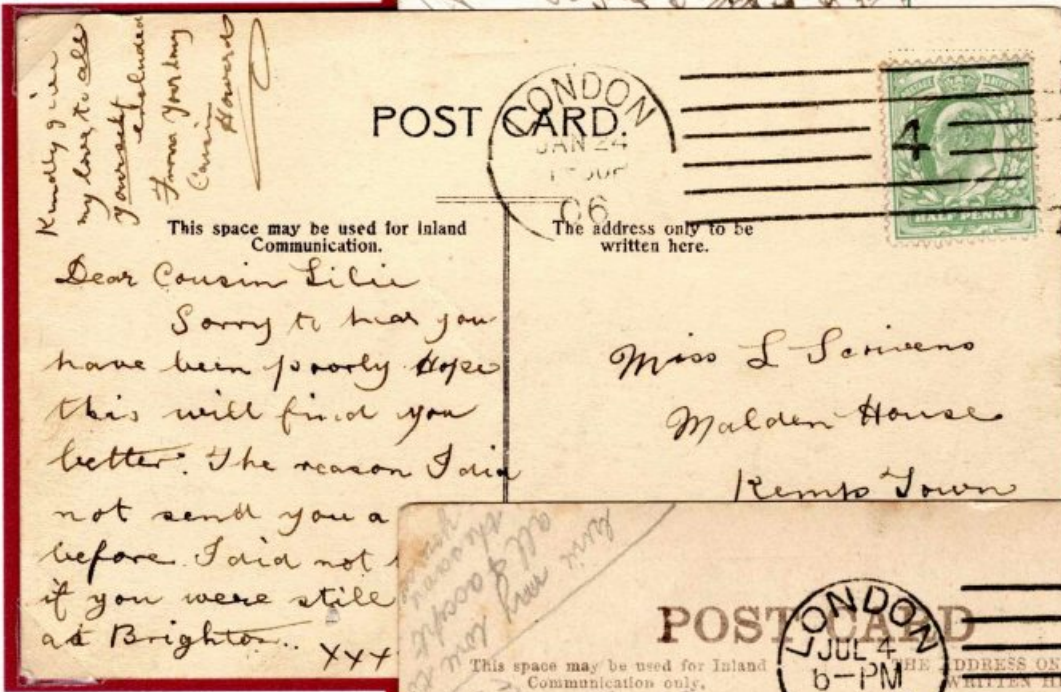 Kindly give
my love to all
yourself
included
From Your loving
Cousin
Howard
POST CARD.
LONDON
JAN 24
06
4
HALF PENNY
This space may be used for Inland
Communication.
The address only to be
written here.
Dear Cousin Lilie
Sorry to hear you
have been poorly Hope
this will find you
better. The reason I did
not send you a
before I did not
if you were still
at Brighton..
XXX
Miss L Scrivens
Malden House
Kemp Town
my
all
accept
love
POST CARD
LONDON
JUL 4
6-PM
This space may be used for Inland
Communication only.
THE ADDRESS ON
WRITTEN H